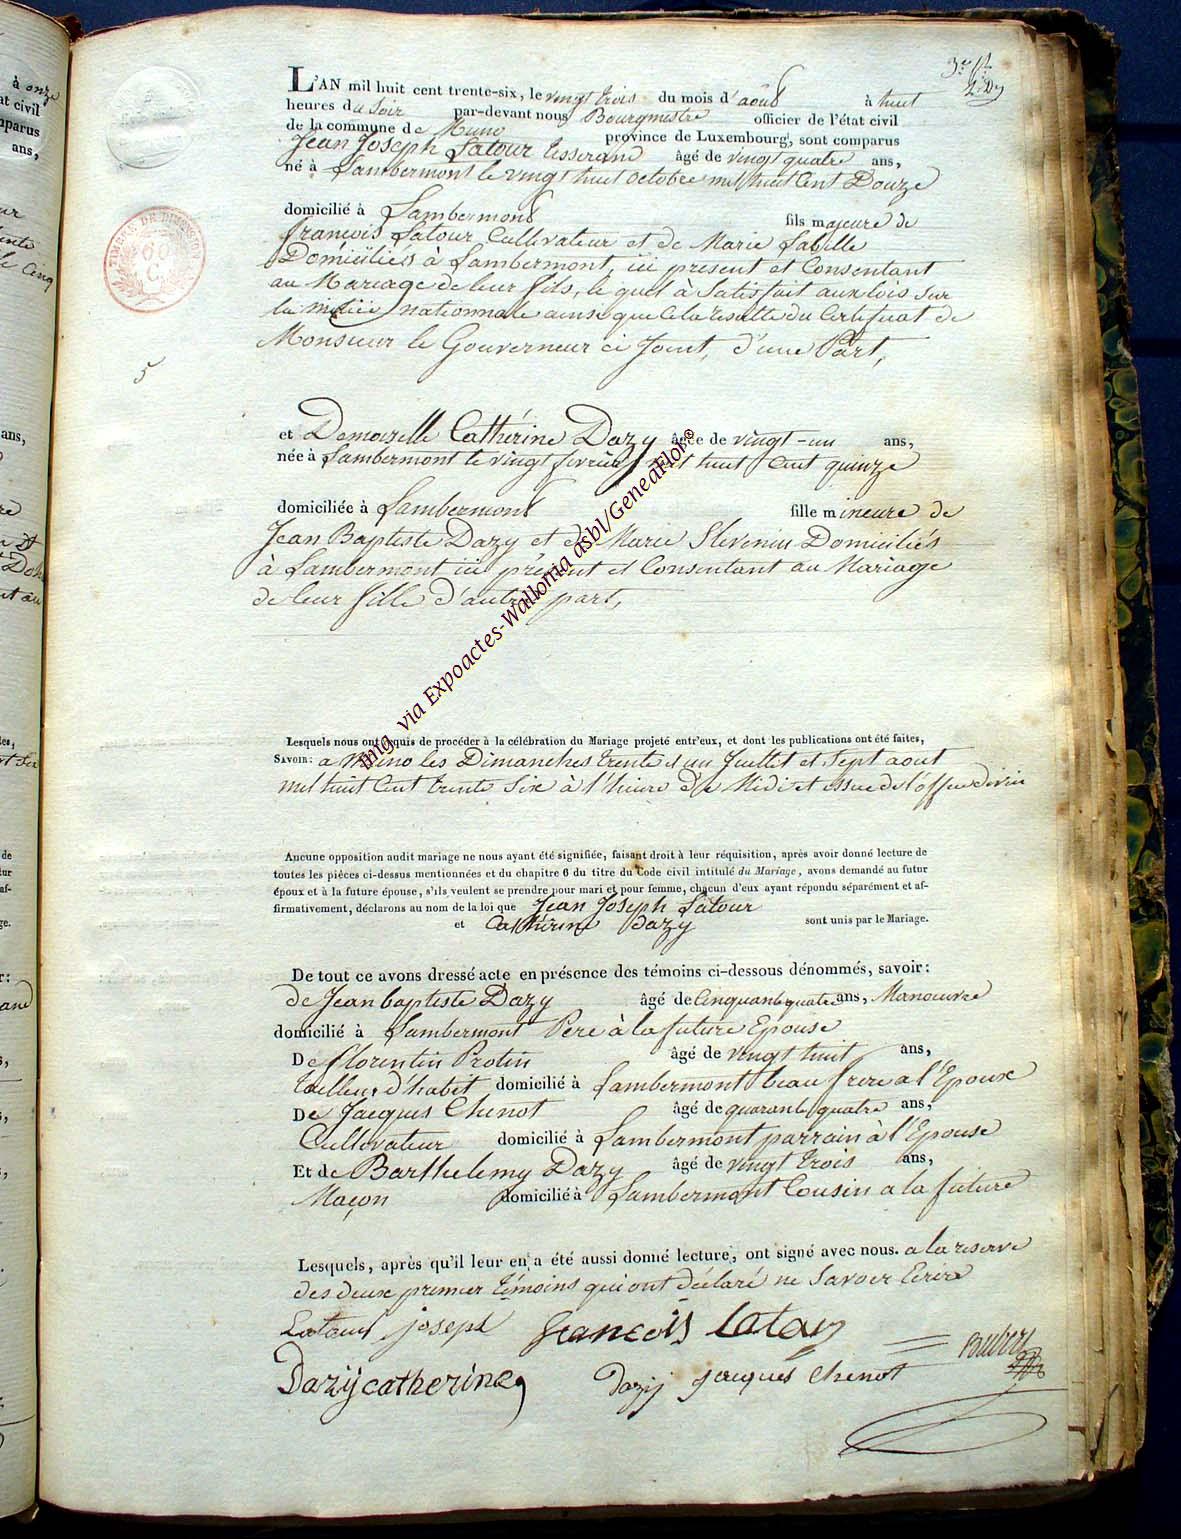 à onze
at civil
mparus
ans,
L'AN mil huit cent trente-six, le vingt trois du mois d'août à huit
heures du Soir par-devant nous Bourgmestre officier de l'état civil
de la commune de Muno province de Luxembourg, sont comparus
Jean Joseph Latour tisserand âgé de vingt quatre ans,
né à Lambermont le vingt huit octobre mil huit Cent Douze
TIMBRE DE DIMENSION
60 C.
domicilié à Lambermont fils majeure de
françois Latour Cultivateur et de Marie Labille
Domiciliés à Lambermont, ici present et Consentant
au Mariage de leur fils, le quel à Satisfait aux lois sur
la milice nationnale ainse que Cela resulte du Certificat de
Monsieur le Gouverneur ci Joint, d'une Part,
5
et Demoiselle Cathérine Dazy âgée de vingt-un ans,
née à Lambermont le vingt fevrier mil huit Cent quinze
domiciliée à Lambermont fille mineure de
Jean Baptiste Dazy et de Marie Domiciliés
à Lambermont ici présent et Consentant au Mariage
de leur fille d'autre part,
Img. via Expoactes-Wallonia asbl/GeneaFlor©
Lesquels nous ont requis de procéder à la célébration du Mariage projeté entr'eux, et dont les publications ont été faites,
SAVOIR: a Muno les Dimanches trente et un Juillet et Sept aout
mil huit Cent trente Six à l'heure de Midi et issue de l'office divin
Aucune opposition audit mariage ne nous ayant été signifiée, faisant droit à leur réquisition, après avoir donné lecture de
toutes les pièces ci-dessus mentionnées et du chapitre 6 du titre du Code civil intitulé du Mariage, avons demandé au futur
époux et à la future épouse, s'ils veulent se prendre pour mari et pour femme, chacun d'eux ayant répondu séparément et af-
firmativement, déclarons au nom de la loi que Jean Joseph Latour
et Cathérine Dazy sont unis par le Mariage.
De tout ce avons dressé acte en présence des témoins ci-dessous dénommés, savoir:
de Jean baptiste Dazy âgé de Cinquante quatre ans, Manouvre
domicilié à Lambermont Pere à la future Epouse
De florentin Protin âgé de vingt huit ans,
tailleur d'habit domicilié à Lambermont beau frere a l'Epoux
De Jacques Chenot âgé de quarante quatre ans,
Cultivateur domicilié à Lambermont parrain à l'Epouse
Et de Barthelemy Dazy âgé de vingt trois ans,
Maçon domicilié à Lambermont Cousin a la future
Lesquels, après qu'il leur en a été aussi donné lecture, ont signé avec nous. a la reserve
des deux premier témoins qui ont déclaré ne Savoir Ecrire
Latour joseph françois latour
Dazij catherine Dazij jacques Chenot